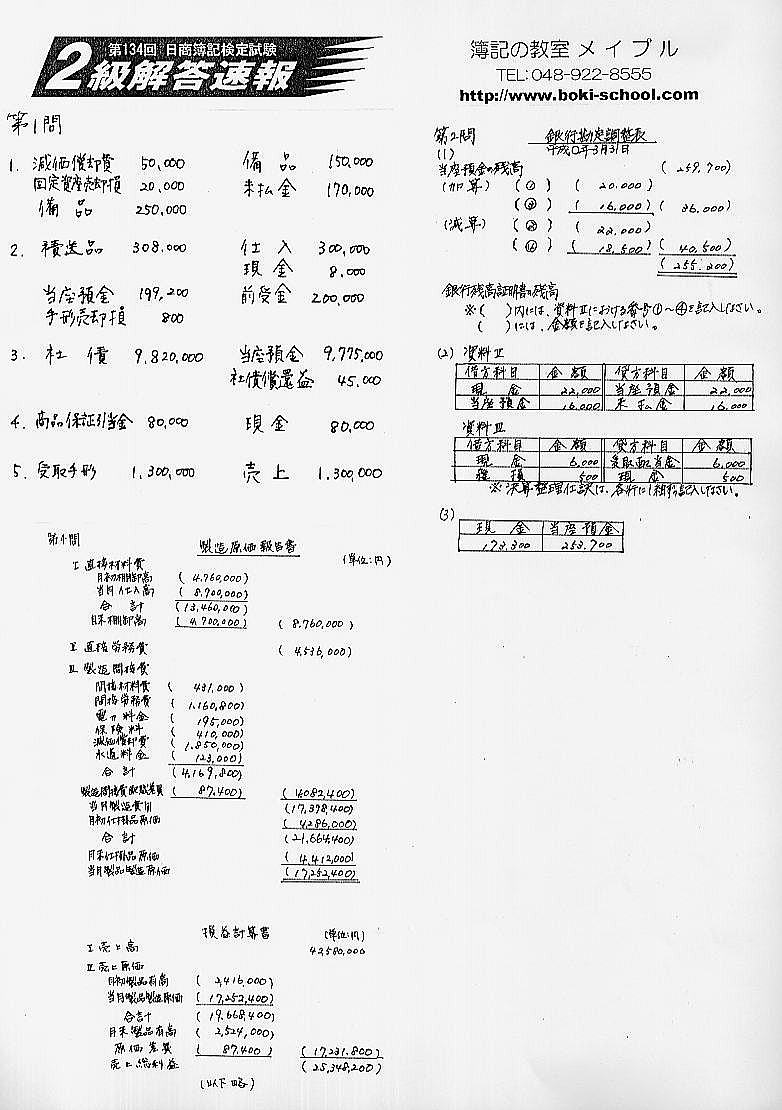 第134回 日商簿記検定試験
2級解答速報
簿記の教室 メイプル
TEL:048-922-8555
http://www.boki-school.com
第1問
1. 減価償却費 50,000 備品 150,000
固定資産売却損 20,000 未払金 170,000
備品 250,000
2. 積送品 308,000 仕入 300,000
現金 8,000
当座預金 199,200 前受金 200,000
手形売却損 800
3. 社債 9,820,000 当座預金 9,775,000
社債償還益 45,000
4. 商品保証引当金 80,000 現金 80,000
5. 受取手形 1,300,000 売上 1,300,000
第2問 銀行勘定調整表
(1) 平成○年3月31日
当座預金の残高 (259,700)
(加算) (①) (20,000)
(③) (16,000) (36,000)
(減算) (②) (22,000)
(④) (18,500) (40,500)
(255,200)
銀行残高証明書の残高
※( )内には、資料Ⅱにおける番号①~④を記入しなさい。
( )には、金額を記入しなさい。
(2) 資料Ⅱ
借方科目 金額 貸方科目 金額
現金 22,000 当座預金 22,000
当座預金 16,000 未払金 16,000
資料Ⅲ
借方科目 金額 貸方科目 金額
現金 6,000 受取配当金 6,000
雑損 500 現金 500
※決算整理仕訳は、各行に1組ずつ記入しなさい。
(3)
現金 当座預金
173,300 253,700
第4問
製造原価報告書
(単位:円)
Ⅰ 直接材料費
月初棚卸高 (4,760,000)
当月仕入高 (8,700,000)
合計 (13,460,000)
月末棚卸高 (4,700,000) (8,760,000)
Ⅱ 直接労務費 (4,536,000)
Ⅲ 製造間接費
間接材料費 (431,000)
間接労務費 (1,160,800)
電力料金 (195,000)
保険料 (410,000)
減価償却費 (1,850,000)
水道料金 (123,000)
合計 (4,169,800)
製造間接費配賦差異 (87,400) (4,082,400)
当月製造費用 (17,378,400)
月初仕掛品原価 (4,286,000)
合計 (21,664,400)
月末仕掛品原価 (4,412,000)
当月製品製造原価 (17,252,400)
損益計算書 (単位:円)
Ⅰ 売上高 42,580,000
Ⅱ 売上原価
月初製品有高 (2,416,000)
当月製品製造原価 (17,252,400)
合計 (19,668,400)
月末製品有高 (2,524,000)
原価差異 (87,400) (17,231,800)
売上総利益 (25,348,200)
(以下略)